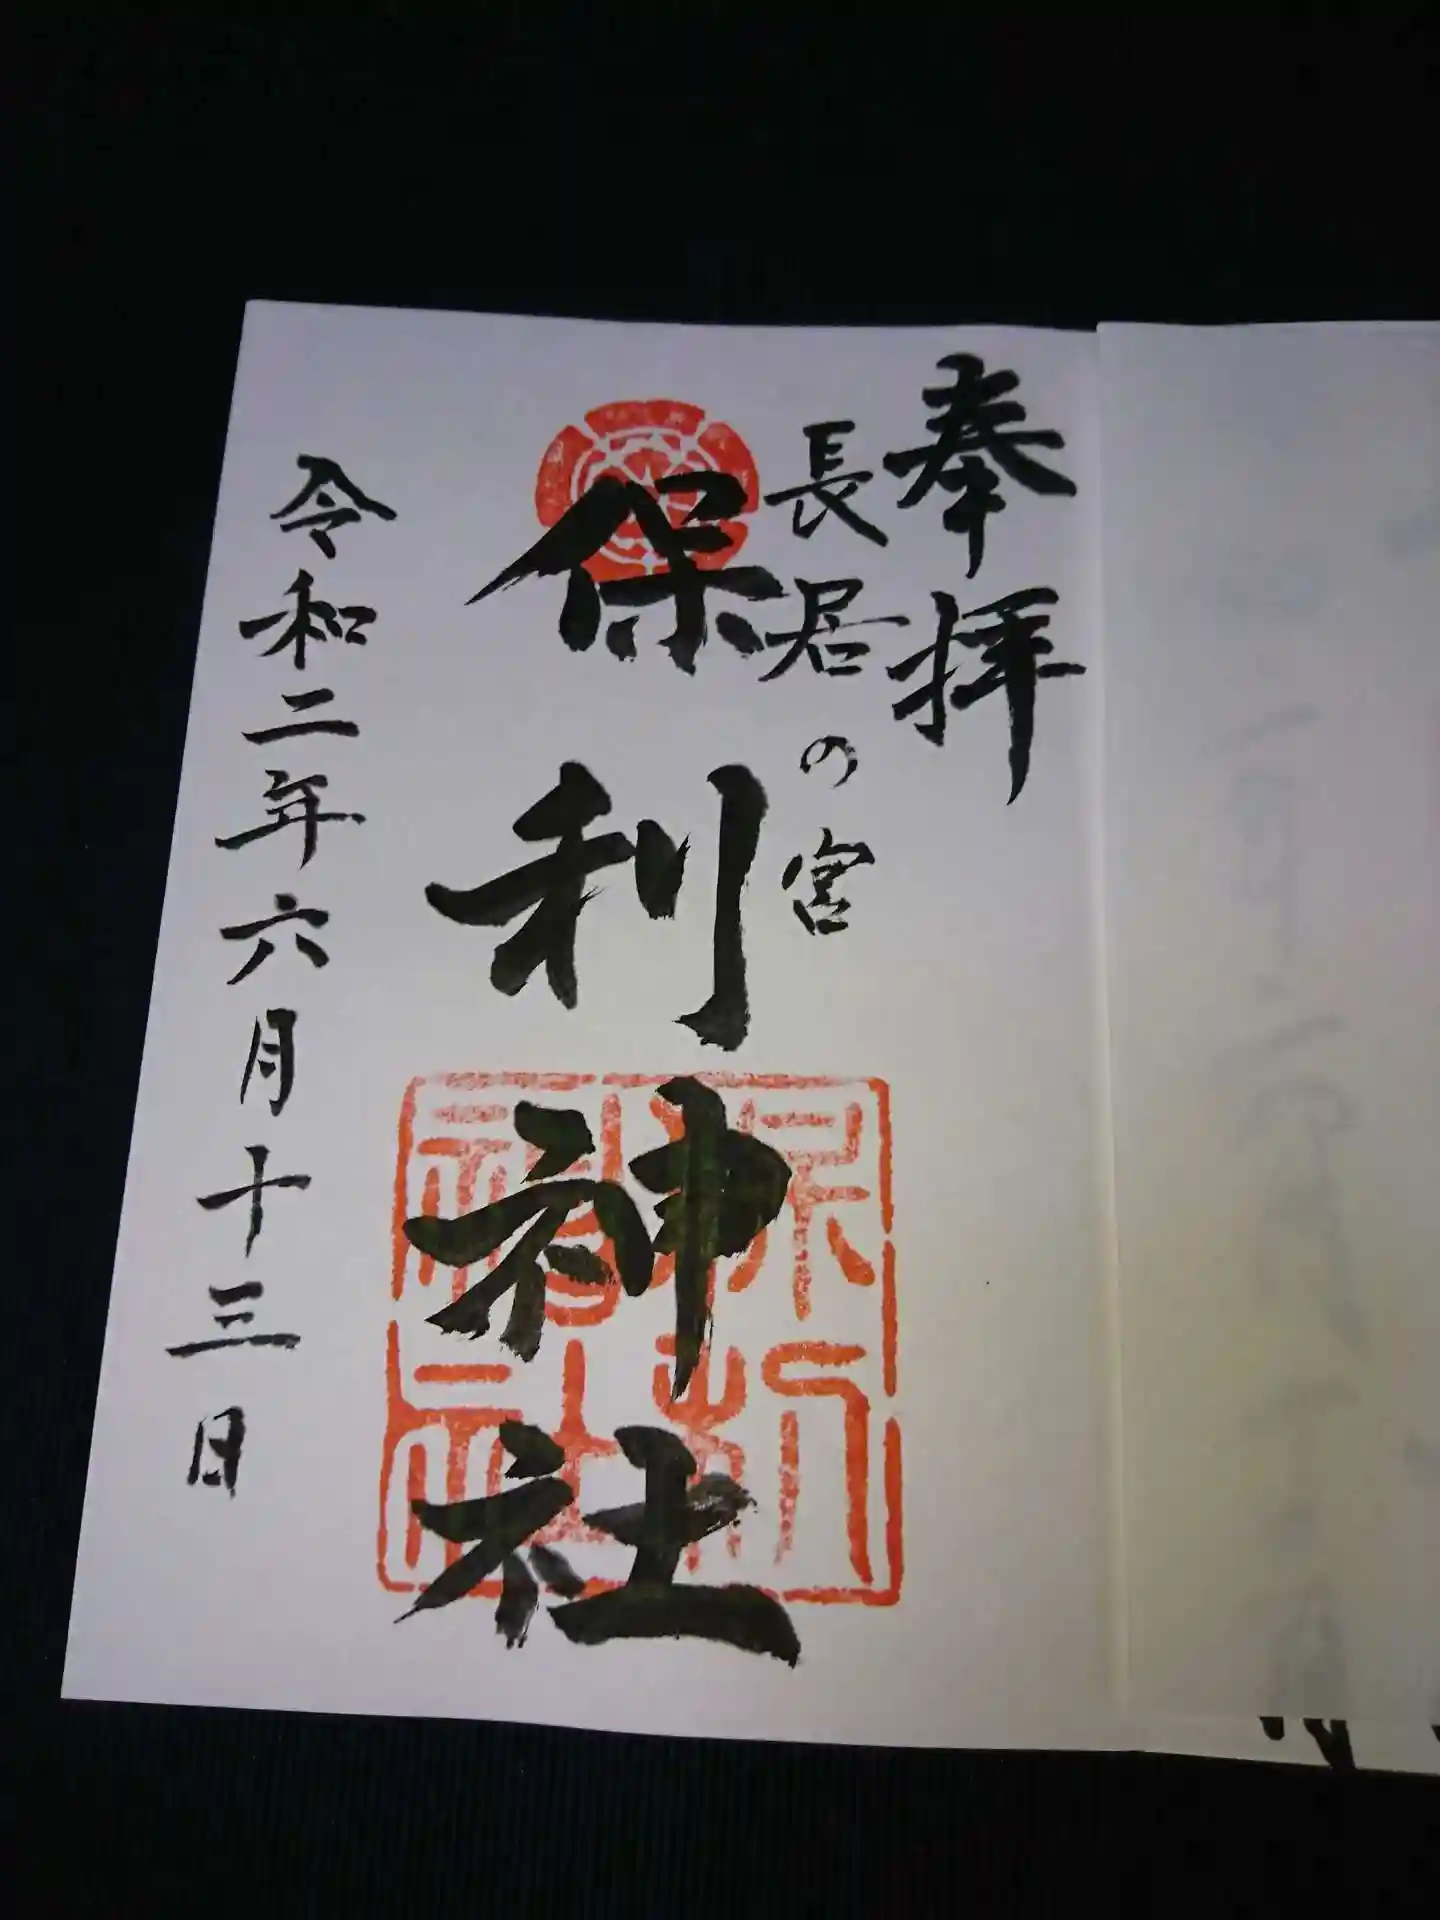 奉拝
長居の宮
保利神社
令和二年六月十三日
保利神社